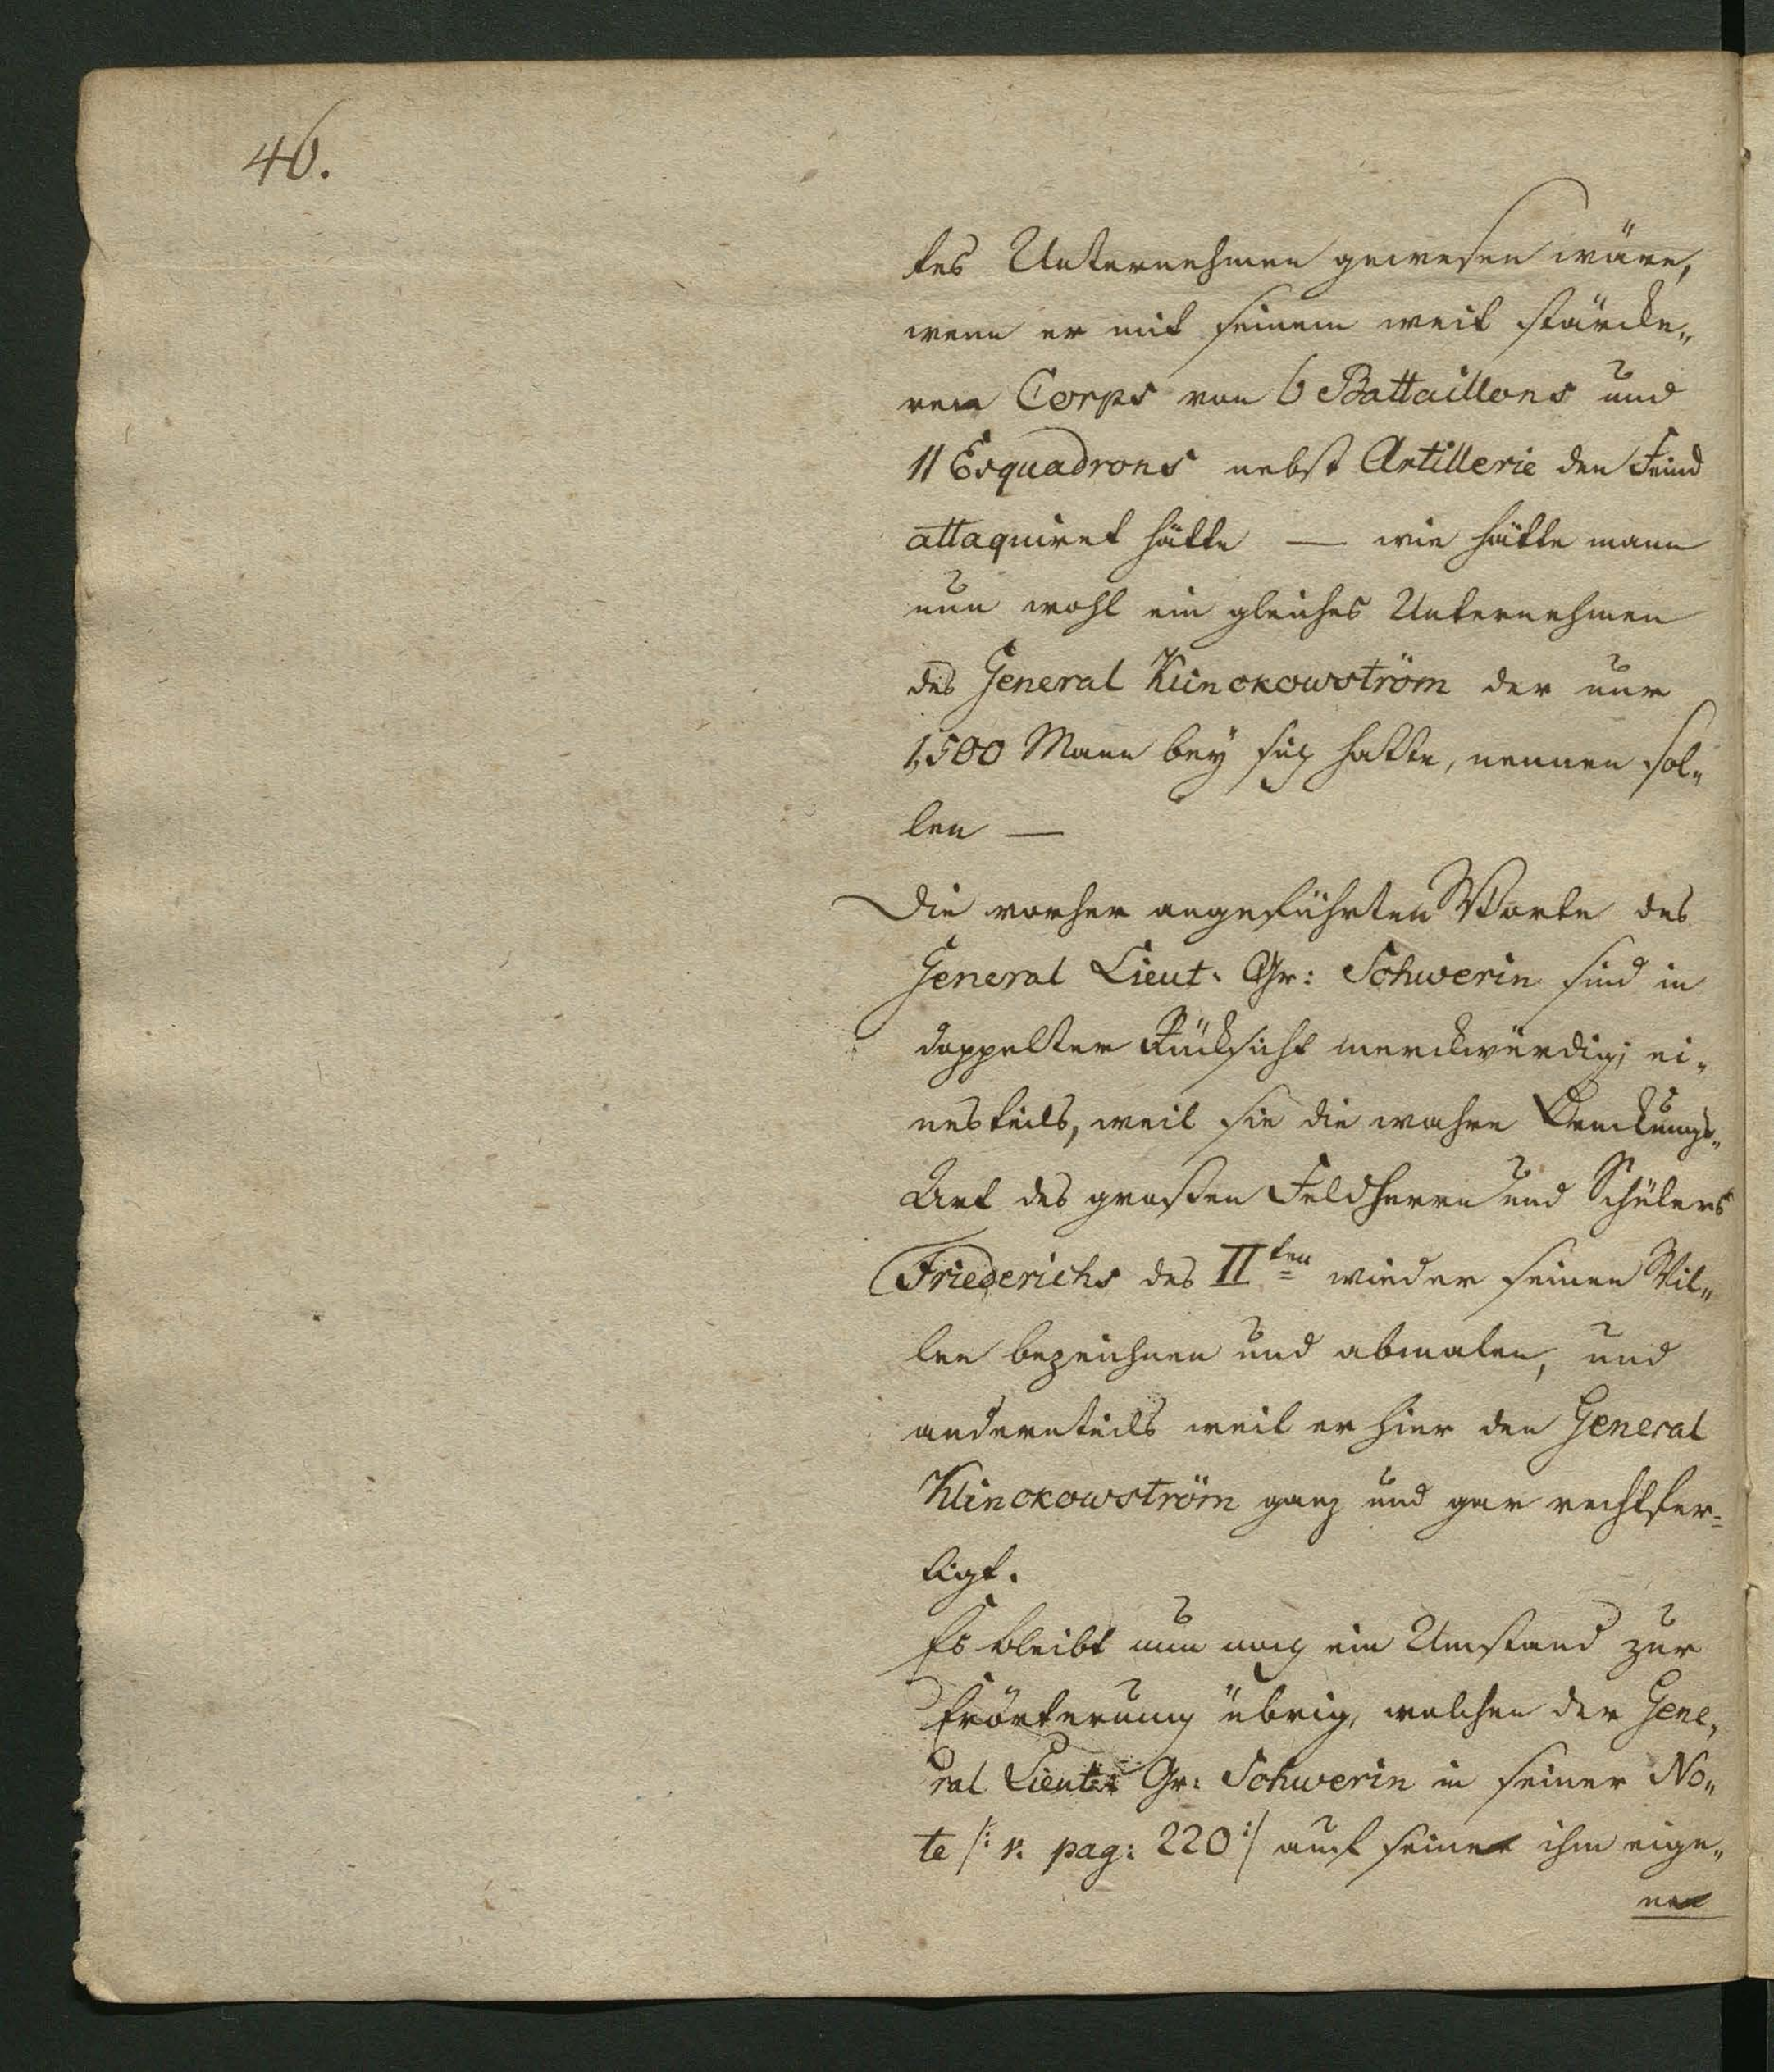 46.
tes Unternehmen gewesen wäre,
wenn er mit seinem weit stärcke„
ren Corps von 6 Battaillons und
11 Esquadrons nebst Artillerie den Feind
attaquiret hätte — wie hätte mann
nun wohl ein gleiches Unternehmen
des General Klinckowström der nur
1,500 Mann bey sich hatte, nennen sol„
len —
Die vorher angeführten Worte des
General Lieut: Gr: Schwerin sind in
doppelter Rücksicht merckwürdig; ei„
nesteils, weil sie die wahre Denckungs„
Art des großen Feldherrn und Schülers
Friederichs des II ten wieder seinen Wil„
len bezeichnen und abmalen, und
andernteils weil er hier den General
Klinckowström ganz und gar rechtfer=
tigt.
Es bleibt nun noch ein Umstand zur
Erörterung übrig, welchen der Gene„
ral Lieut: Gr: Schwerin in seiner No„
te /: v. pag: 220 :/ auf seine ihm eige„
ne